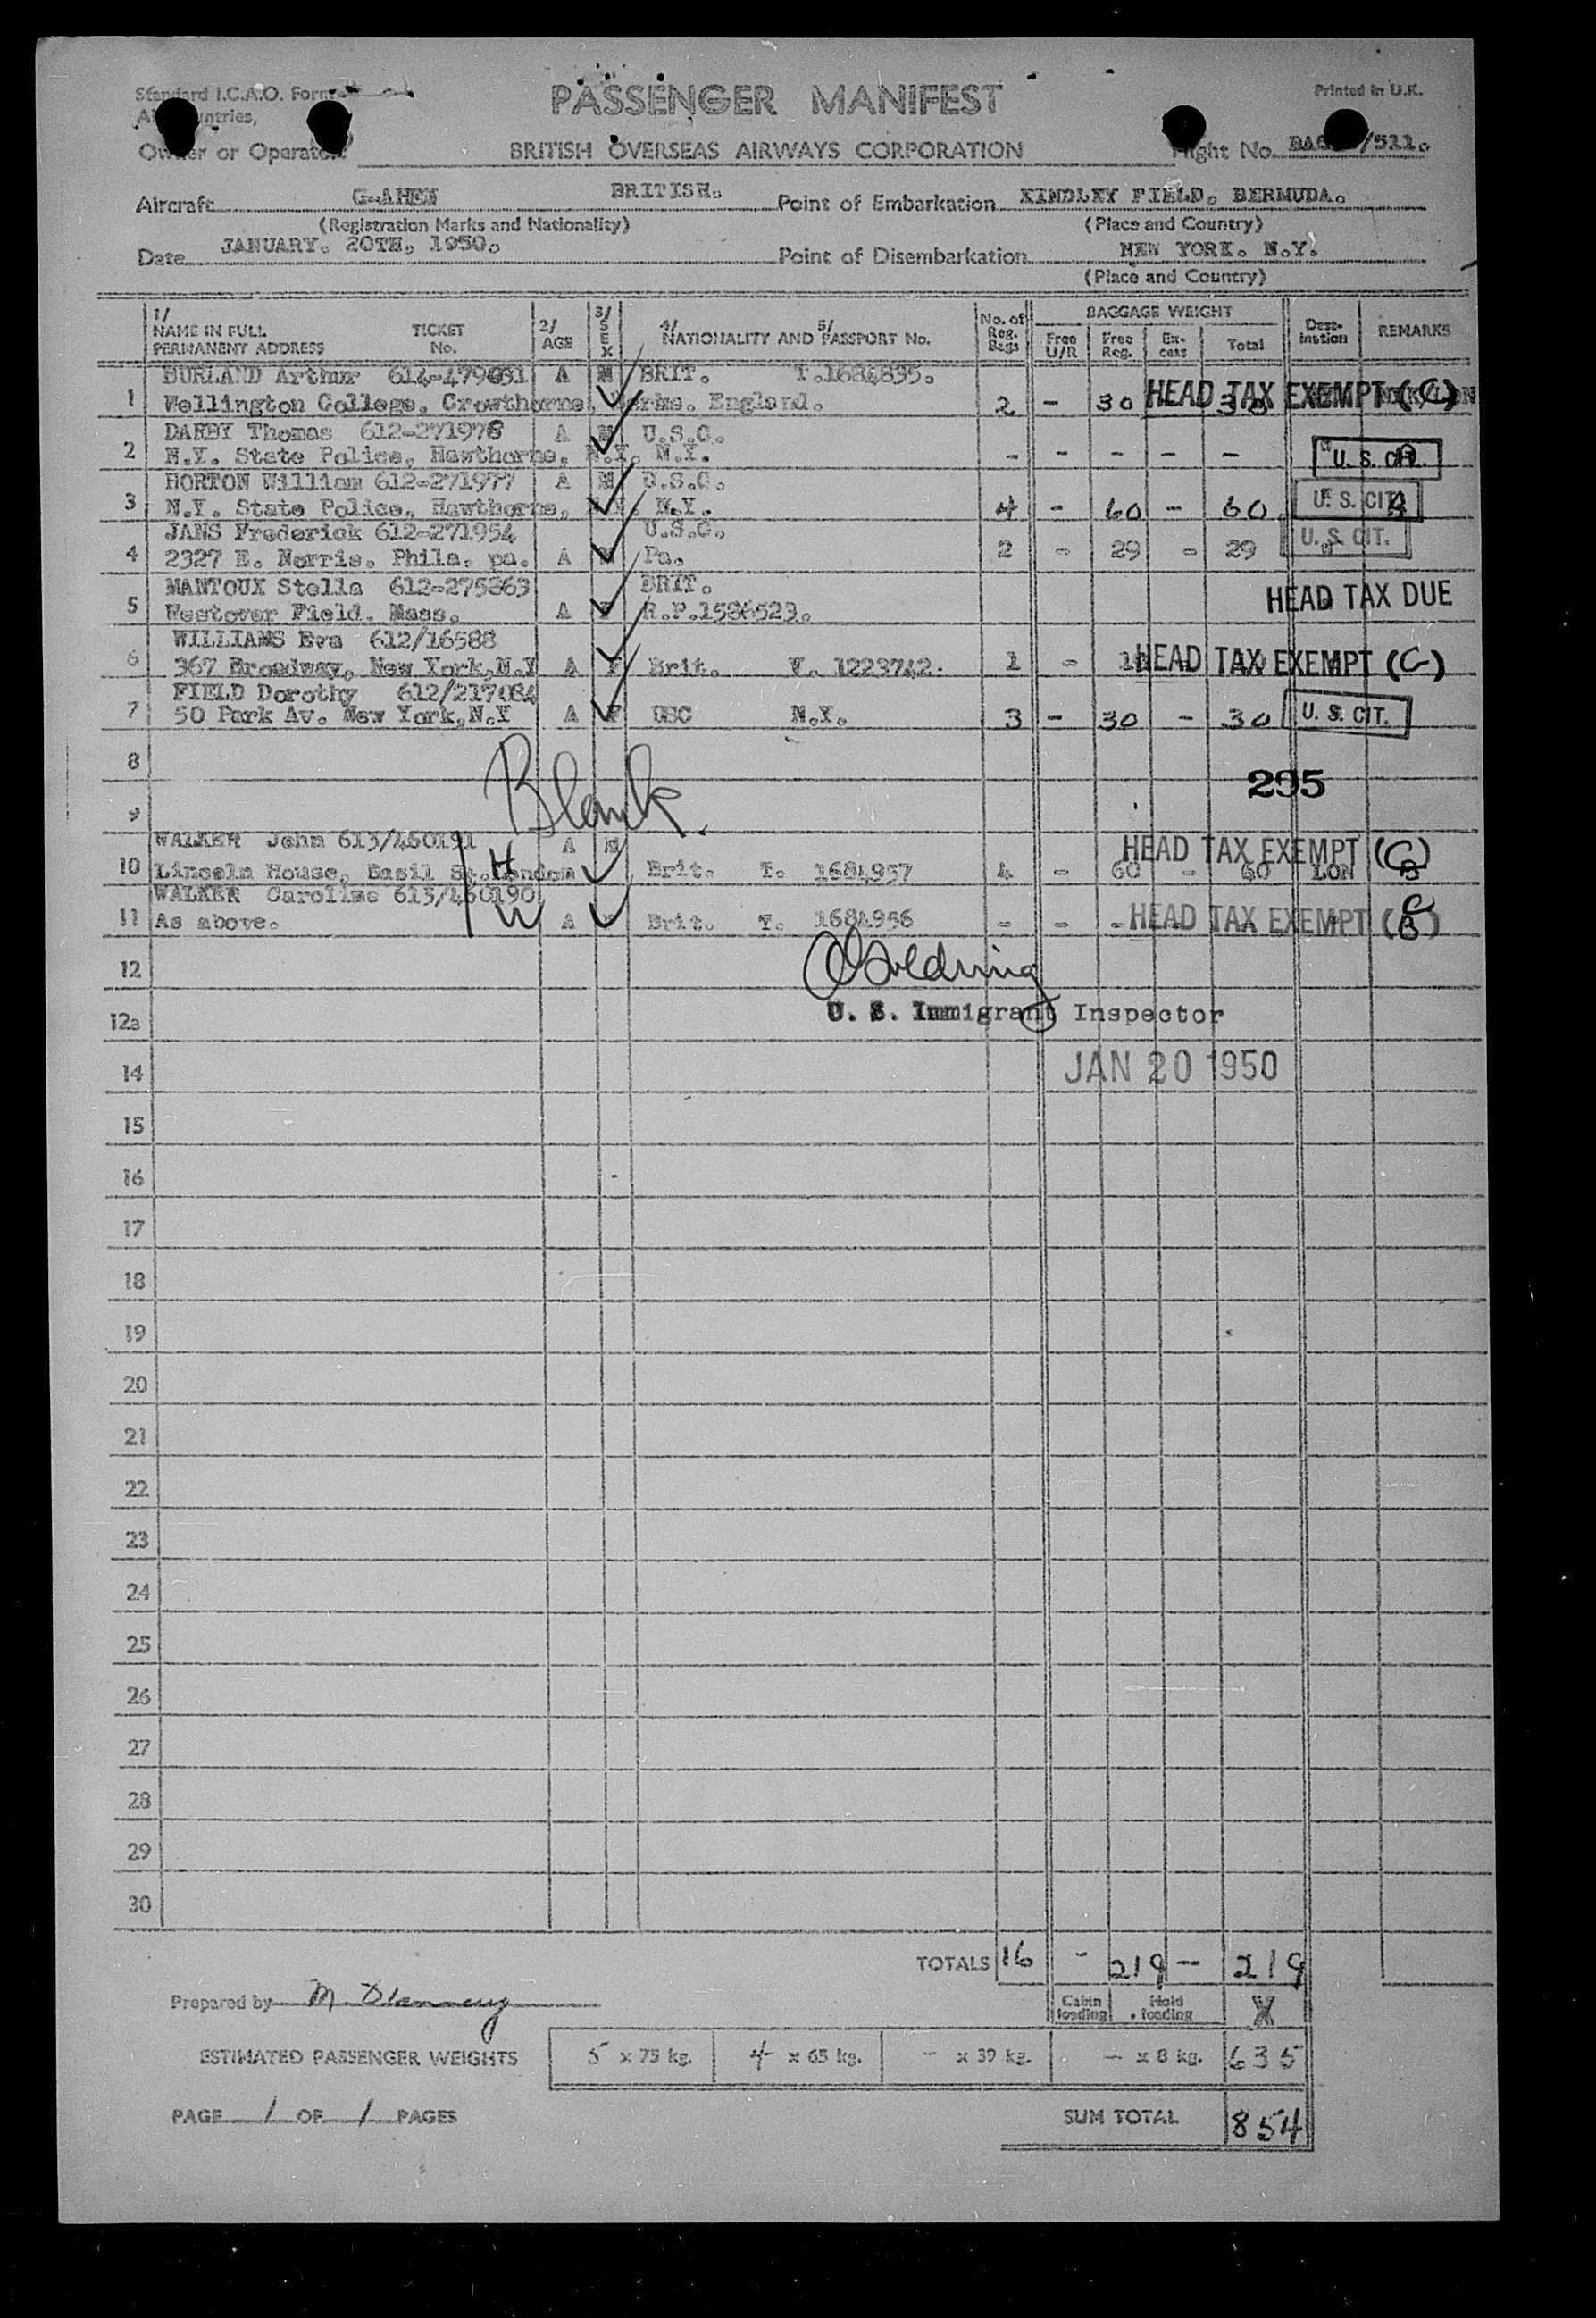 Standard I.C.A.O. Form
PASSENGER MANIFEST
Printed in U.K.
Owner or Operator
BRITISH OVERSEAS AIRWAYS CORPORATION
Flight No. /511.
Aircraft G-AHEN BRITISH. Point of Embarkation KINDLEY FIELD. BERMUDA.
(Registration Marks and Nationality) (Place and Country)
Date JANUARY. 20TH, 1950. Point of Disembarkation NEW YORK. N.Y.
(Place and Country)
1/ NAME IN FULL PERMANENT ADDRESS TICKET No. 2/ AGE 3/ SEX 4/ NATIONALITY AND 5/ PASSPORT No. No. of Reg. Bags BAGGAGE WEIGHT Free U/R Free Reg. Ex-cess Total Dest-ination REMARKS
BURLAND Arthur 614-479031 A M BRIT. T.1684835.
1 Wellington College, Crowthorne, Berks. England. 2 - 30 HEAD TAX EXEMPT (C)
DARBY Thomas 612-271978 A M U.S.C.
2 N.Y. State Police, Hawthorne, N.Y. N.Y. - - - - - U. S. CIT.
HORTON William 612-271977 A M U.S.C.
3 N.Y. State Police, Hawthorne, N.Y. 4 - 60 - 60 U. S. CIT.
JANS Frederick 612-271954 U.S.C.
4 2327 E. Norris. Phila. pa. A M Pa. 2 - 29 - 29 U. S. CIT.
MANTOUX Stella 612-275863 BRIT.
5 Westover Field. Mass. A F R.P.1586523. HEAD TAX DUE
WILLIAMS Eva 612/16588
6 367 Broadway, New York,N.Y A F Brit. V. 1223742. 1 - HEAD TAX EXEMPT (C)
FIELD Dorothy 612/217084
7 50 Park Av. New York,N.Y A F USC N.Y. 3 - 30 - 30 U. S. CIT.
8
295
Blank.
9
WALKER John 613/460191 A M HEAD TAX EXEMPT (C)
10 Lincoln House, Basil St. London H Brit. T. 1684957 4 - 60 - 60 LON
WALKER Caroline 613/460190
11 As above. W A Brit. T. 1684956 - - - HEAD TAX EXEMPT (C)
12
12a U. S. Immigrant Inspector
14 JAN 20 1950
15
16
17
18
19
20
21
22
23
24
25
26
27
28
29
30
TOTALS 16 - 219 - 219
Prepared by M.
Cabin loading Hold loading X
ESTIMATED PASSENGER WEIGHTS 5 x 75 kg. 4 x 65 kg. - x 39 kg. - x 8 kg. 635
PAGE 1 OF 1 PAGES SUM TOTAL 854